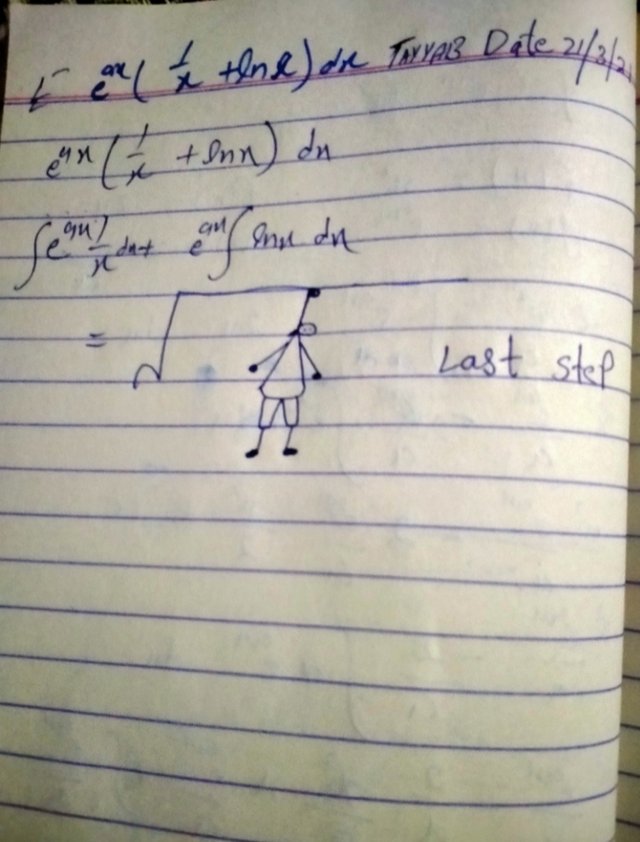 e^ax ( 1/x + ln x ) dx TAYYAB Date 21/3/2
e^ax ( 1/x + ln x ) dx
∫ e^ax 1/x dx + e^ax ∫ ln x dx
=
Last step